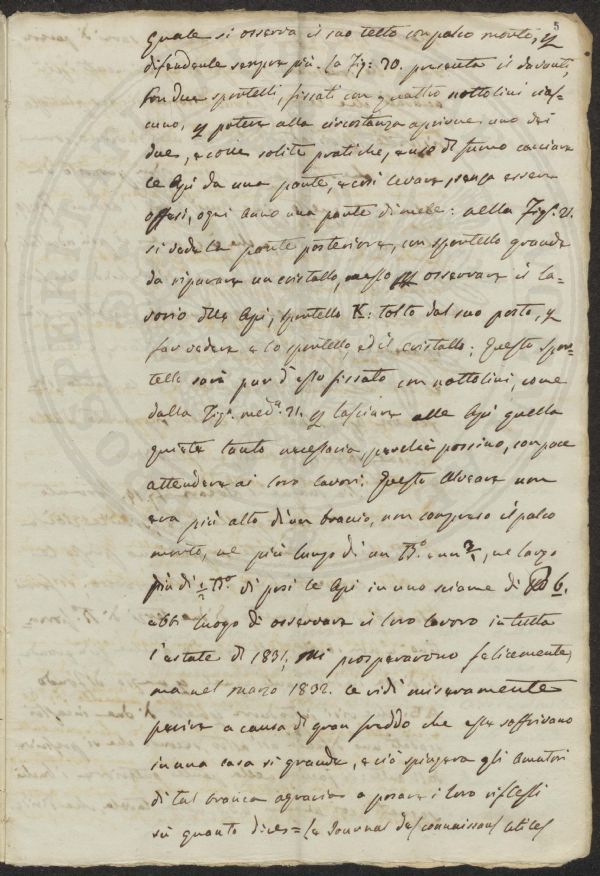 5
quale si osserva il suo tetto con palco morto, p
difenderle sempre più. La Fig: 20. presenta il davanti,
con due sportelli, fissati con quattro nottolini cias-
cuno, p potere alla circostanza aprirne uno dei
due, e colle solite pratiche, e uso di fumo cacciare
le Api da una parte, e così levare, senza essere
offesi, ogni anno una parte di mele: nella Fig: 21.
si vede la parte posteriore, con sportello grande
da riparare un cristallo, messo p osservare il la-
vorio delle Api, sportello K: tolto dal suo posto, p
far vedere e lo sportello, ed il cristallo; Questo spor-
tello sarà pur d'esso fissato con nottolini, come
dalla Fig. med.a 21. p lasciare alle Api quella
quiete tanto necessaria, perchè possino, con pace
attendere ai loro lavori. Questo Alveare non
era più alto di un braccio, non compreso il palco
morto, nè più lungo di un B.o e un, nè largo
più di 1/2 B.o di posi le Api in uno sciame di 6.
ebbi luogo di osservare il loro lavoro in tutta
l'estate di 1831; mi prosperarono felicemente,
ma nel marzo 1832. le vidi miseramente
perire a causa di gran freddo che esse soffrivano
in una casa sì grande, e ciò spingera gli Amatori
di tal branca agraria a posare i loro riflessi
sù quanto dice = Le Journal des connaissans utiles